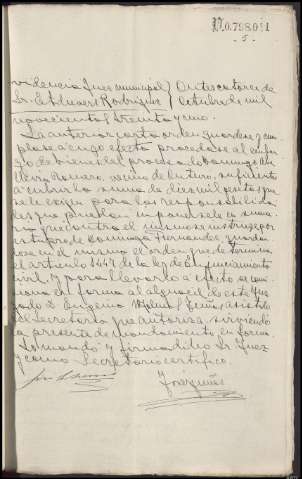 N.0.798.091
-5-
videncia Juez municipal } Outes catorce de
Sr. Rodriguez } octubre de mil
novecientos treinta y uno.
La anterior carta orden guardese y cum
plase a cuyo efecto procedase al embar
go de bienes del procesado Domingo An
Romero, vecino de suficiente
a cubrir la suma de diez mil pesetas que
se exigen para las responsabilida
des que puedan imponersele en suma
rio que contra el mismo se instruye por
estupro de Dominga Fernandez guardan
dose en el mismo el orden que determina
el articulo 1447 de la ley de Enjuiciamiento
civil, y para llevarlo a efecto se comi
siona en forma al alguacil de este Juz
gado D. Eugenio asistido
del Secretario que autoriza, sirviendo
la presente de mandamiento en forma.
Lo mando y firma dicho Sr Juez
y como Secretario certifico.